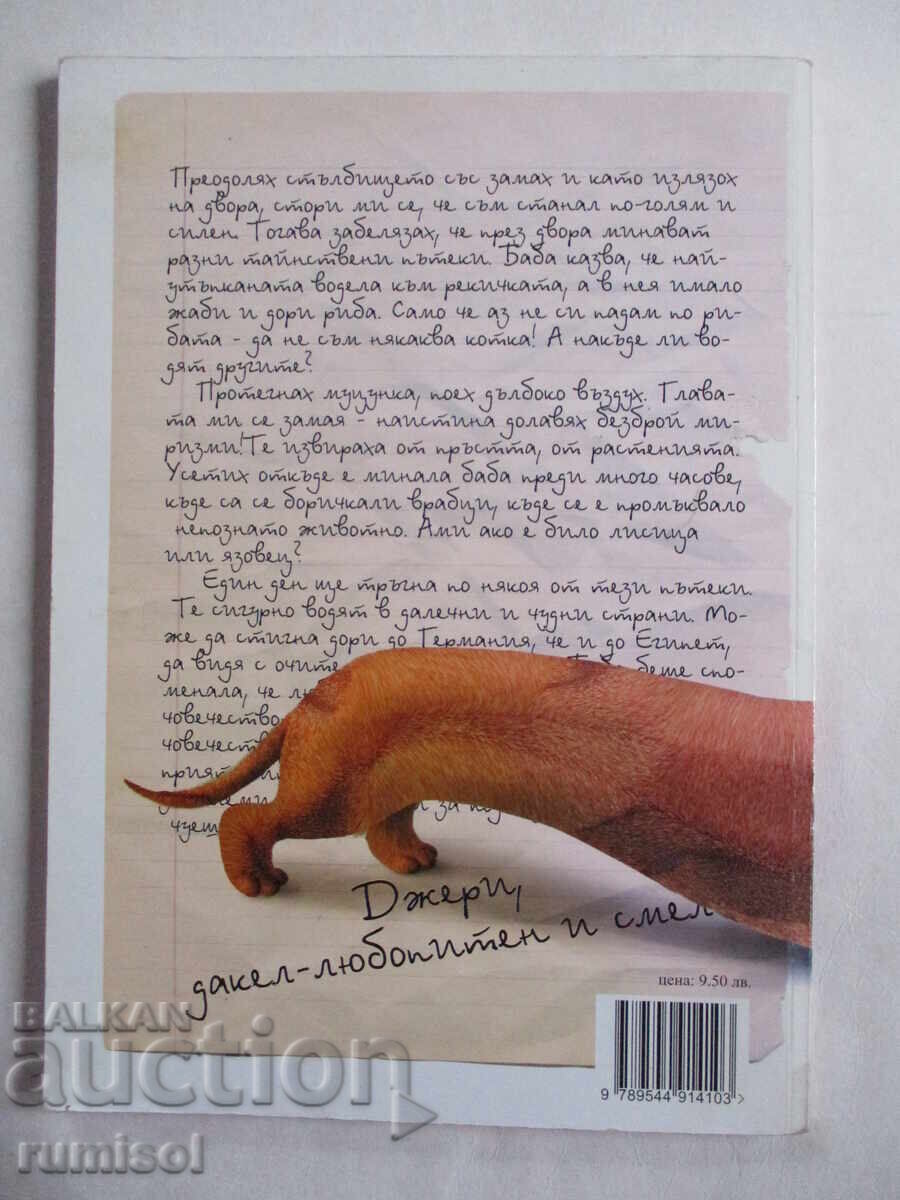 Преодолях стълбището със замах и като излязох
на двора, стори ми се, че съм станал по-голям и
силен. Тогава забелязах, че през двора минават
разни тайнствени пътеки. Баба казва, че най-
утъпканата водела към рекичката, а в нея имало
жаби и дори риба. Само че аз не си падам по ри-
бата - да не съм някаква котка! А накъде ли во-
дят другите?
Протегнах муцунка, поех дълбоко въздух. Глава-
та ми се замая - наистина долавях безброй ми-
ризми! Те извираха от пръстта, от растенията.
Усетих откъде е минала баба преди много часове,
къде са се боричкали врабци, къде се е промъквало
непознато животно. Ами ако е било лисица
или язовец?
Един ден ще тръгна по някоя от тези пътеки.
Те сигурно водят в далечни и чудни страни. Мо-
же да стигна дори до Германия, че и до Египет,
да видя с очите беше спо-
менала, че
човечество
човечеств
прият
за
Джери,
дакел-любопитен и смел
цена: 9.50 лв.
9 789544 914103 >
BALKAN
auction
rumisol